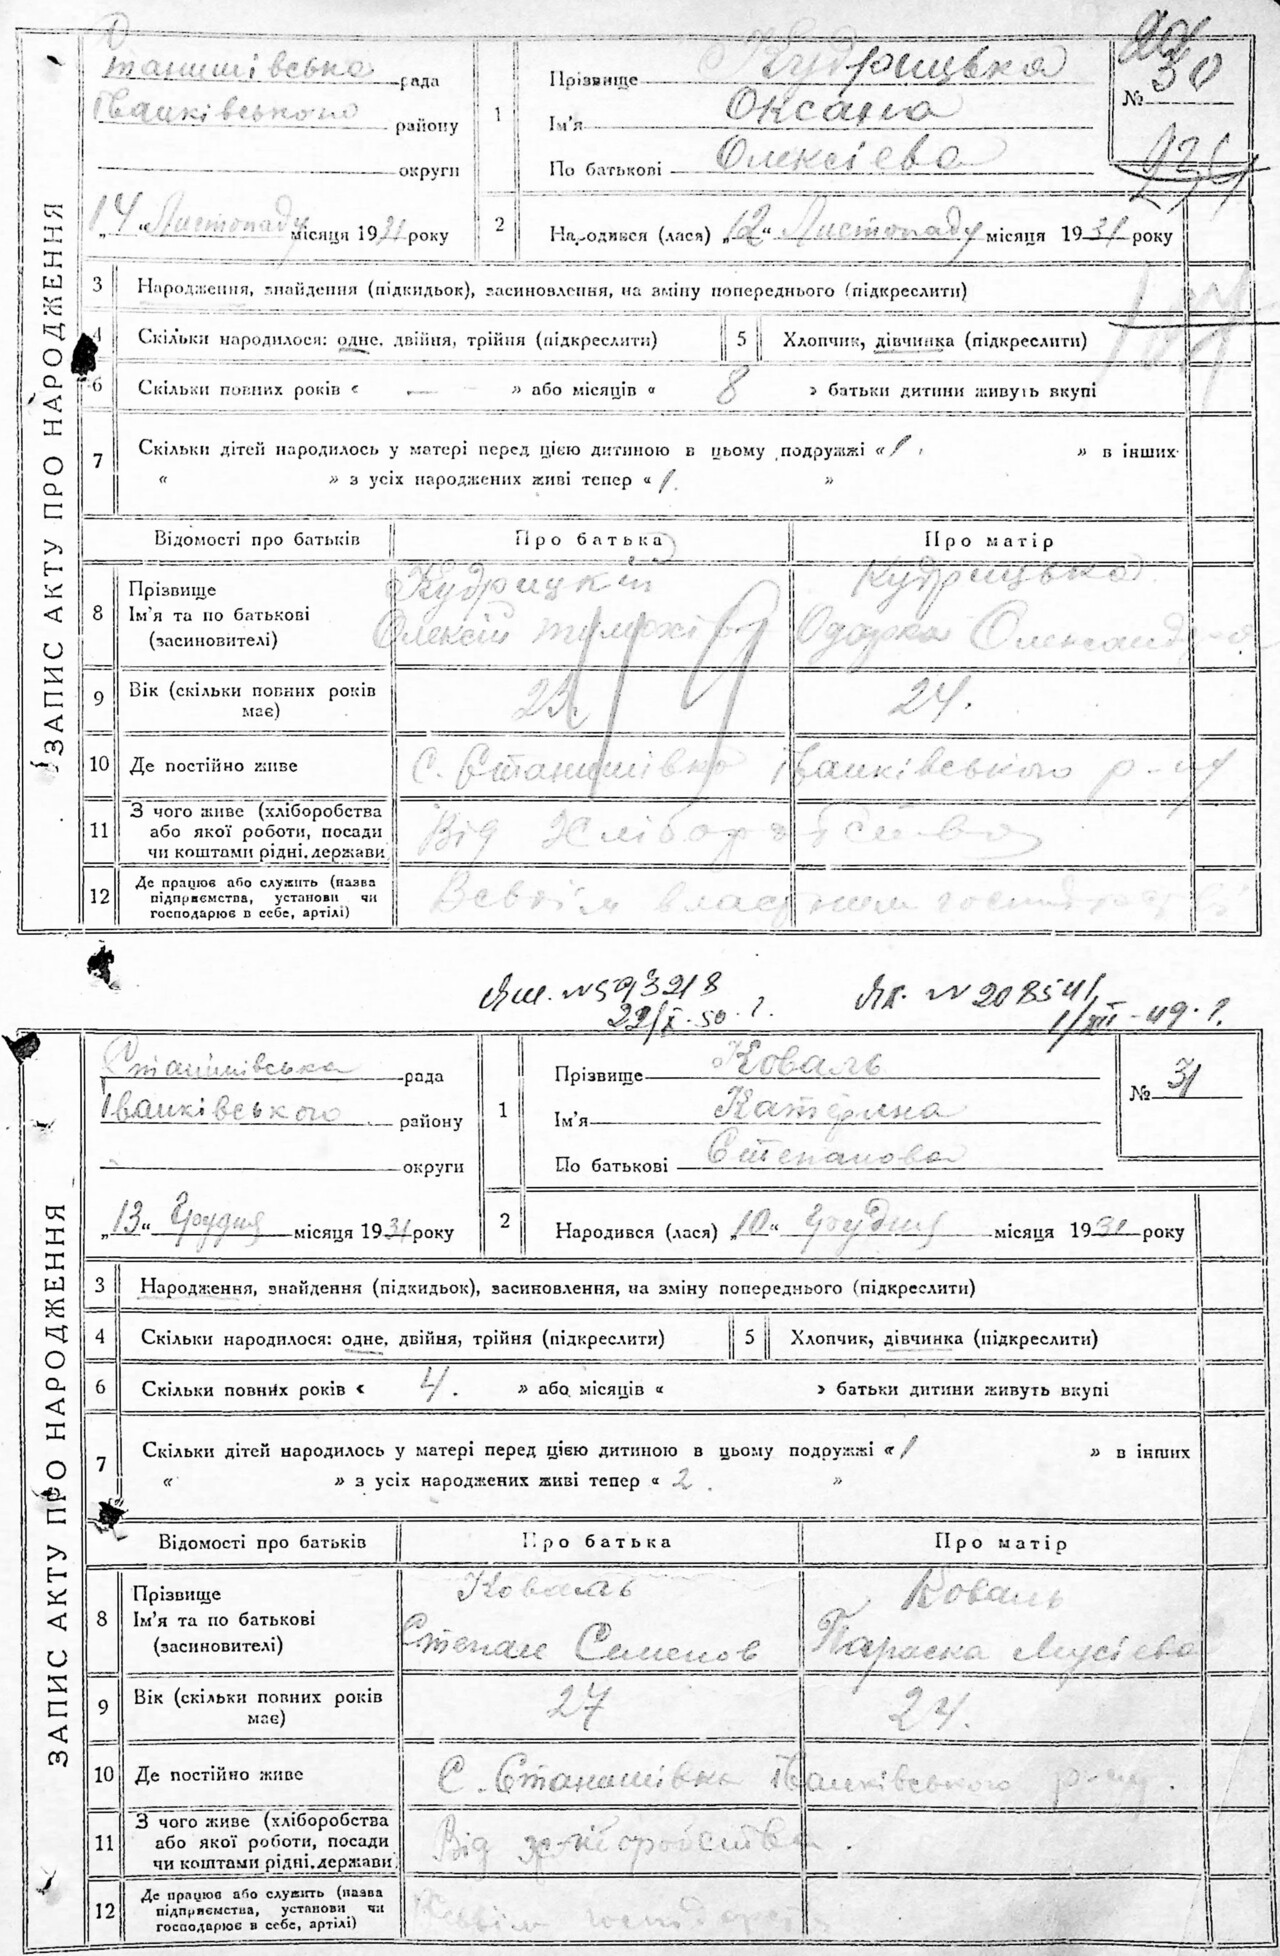 ЗАПИС АКТУ ПРО НАРОДЖЕННЯ
Станишівська рада
Іванківського району
округи
„14“ Листопаду місяця 1931 року
1
Прізвище Кудрицька
Ім'я Оксана
По батькові Олексієва
№ 30
2
Народився (лася) „12“ Листопаду місяця 1931 року
3 Народження, знайдення (підкидьок), засиновлення, на зміну попереднього (підкреслити)
4 Скільки народилося: одне, двійня, трійня (підкреслити) 5 Хлопчик, дівчинка (підкреслити)
6 Скільки повних років « — » або місяців « 8 » батьки дитини живуть вкупі
7 Скільки дітей народилось у матері перед цією дитиною в цьому подружжі « 1 » в інших
« » з усіх народжених живі тепер « 1 »
Відомості про батьків Про батька Про матір
8 Прізвище Кудрицкій Кудрицька
Ім'я та по батькові Олексій Одарка
(засиновителі)
9 Вік (скільки повних років має) 23 24.
10 Де постійно живе С. Станишівка Іванківського р-ну
11 З чого живе (хліборобства
або якої роботи, посади Від Хліборобства
чи коштами рідні, держави
12 Де працює або служить (назва
підприємства, установи чи
господарює в себе, артілі)
№ 593218 № 208541
22/X-50 г. 1/XII-49 г.
ЗАПИС АКТУ ПРО НАРОДЖЕННЯ
Станишівська рада
Іванківського району
округи
„13“ Грудня місяця 1931 року
1
Прізвище Коваль
Ім'я Катерина
По батькові Степанова
№ 31
2
Народився (лася) „10“ Грудня місяця 1931 року
3 Народження, знайдення (підкидьок), засиновлення, на зміну попереднього (підкреслити)
4 Скільки народилося: одне, двійня, трійня (підкреслити) 5 Хлопчик, дівчинка (підкреслити)
6 Скільки повних років « 4. » або місяців « » батьки дитини живуть вкупі
7 Скільки дітей народилось у матері перед цією дитиною в цьому подружжі « 1 » в інших
« » з усіх народжених живі тепер « 2 »
Відомості про батьків Про батька Про матір
8 Прізвище Коваль Коваль
Ім'я та по батькові Степан Семенов Параска Мусієва
(засиновителі)
9 Вік (скільки повних років має) 27 24.
10 Де постійно живе С. Станишівка Іванківського р-ну.
11 З чого живе (хліборобства
або якої роботи, посади Від хліборобства.
чи коштами рідні, держави
12 Де працює або служить (назва
підприємства, установи чи
господарює в себе, артілі)